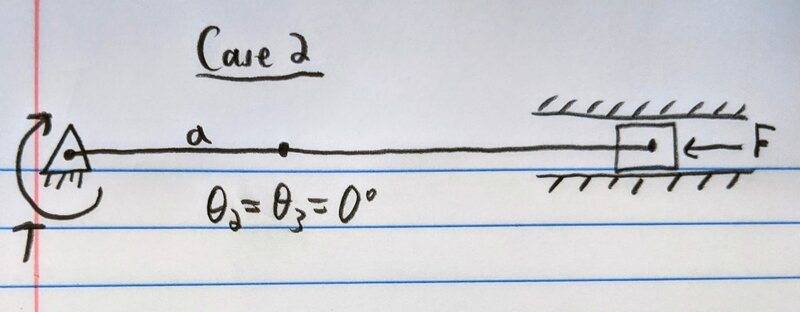 Case 2
a
F
θ₂ = θ₃ = 0°
T